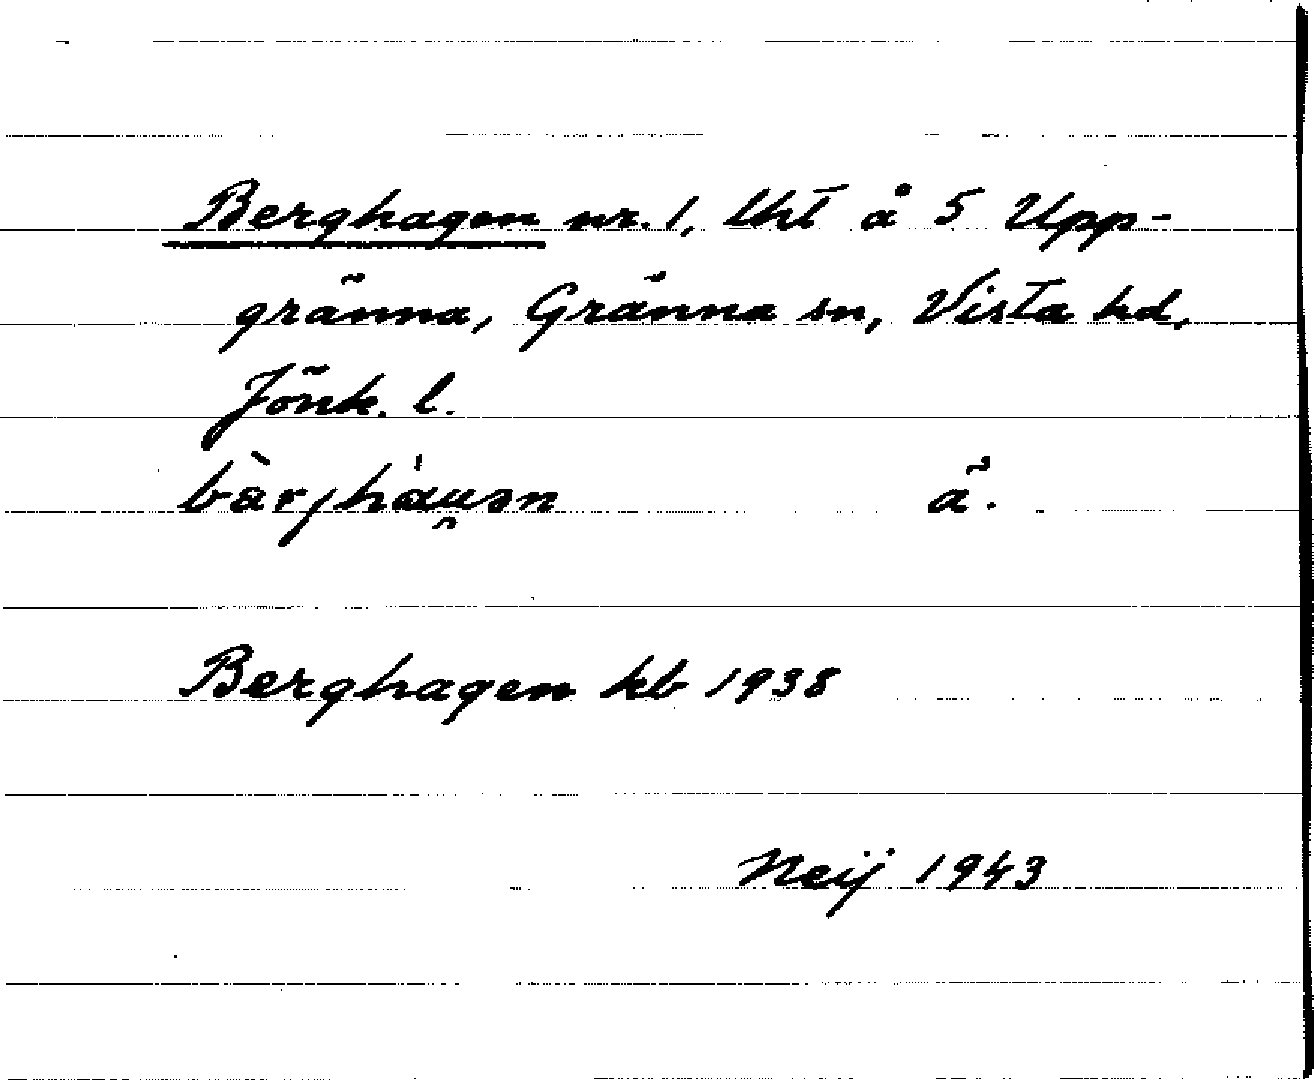 Berghagen nr. 1, lht å 5 Upp-
gränna, Gränna sn, Vista hd,
Jönk. l.
ä.
Berghagen kb 1938
Neij 1943